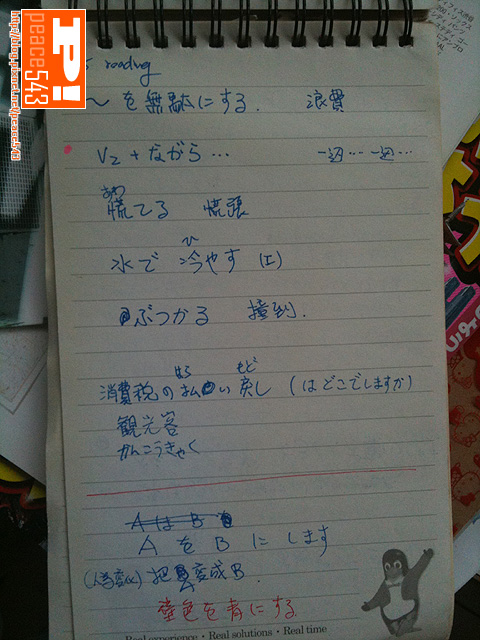 P!
peace543
http://blog.pixnet.net/peace543
reading
～を無駄にする. 浪費
V2+ながら… 一边…一边…
あわ
慌てる 慌張
ひ
水で 冷やす (I)
ぶつかる 撞到.
はら もど
消費税の払い戻し (はどこでしますか)
観光客
かんこうきゃく
AはB
AをBにします
(人為変化) 把A变成B.
色を青にする
Real experience • Real solutions • Real time